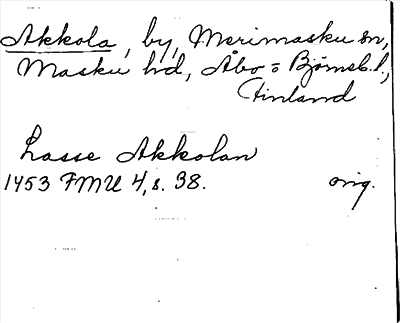 Akkola, by, Merimasku sn,
Masku hd, Åbo = Björneb. l.,
Finland
Lasse Akkolan
1453 FMU 4, s. 38. orig.